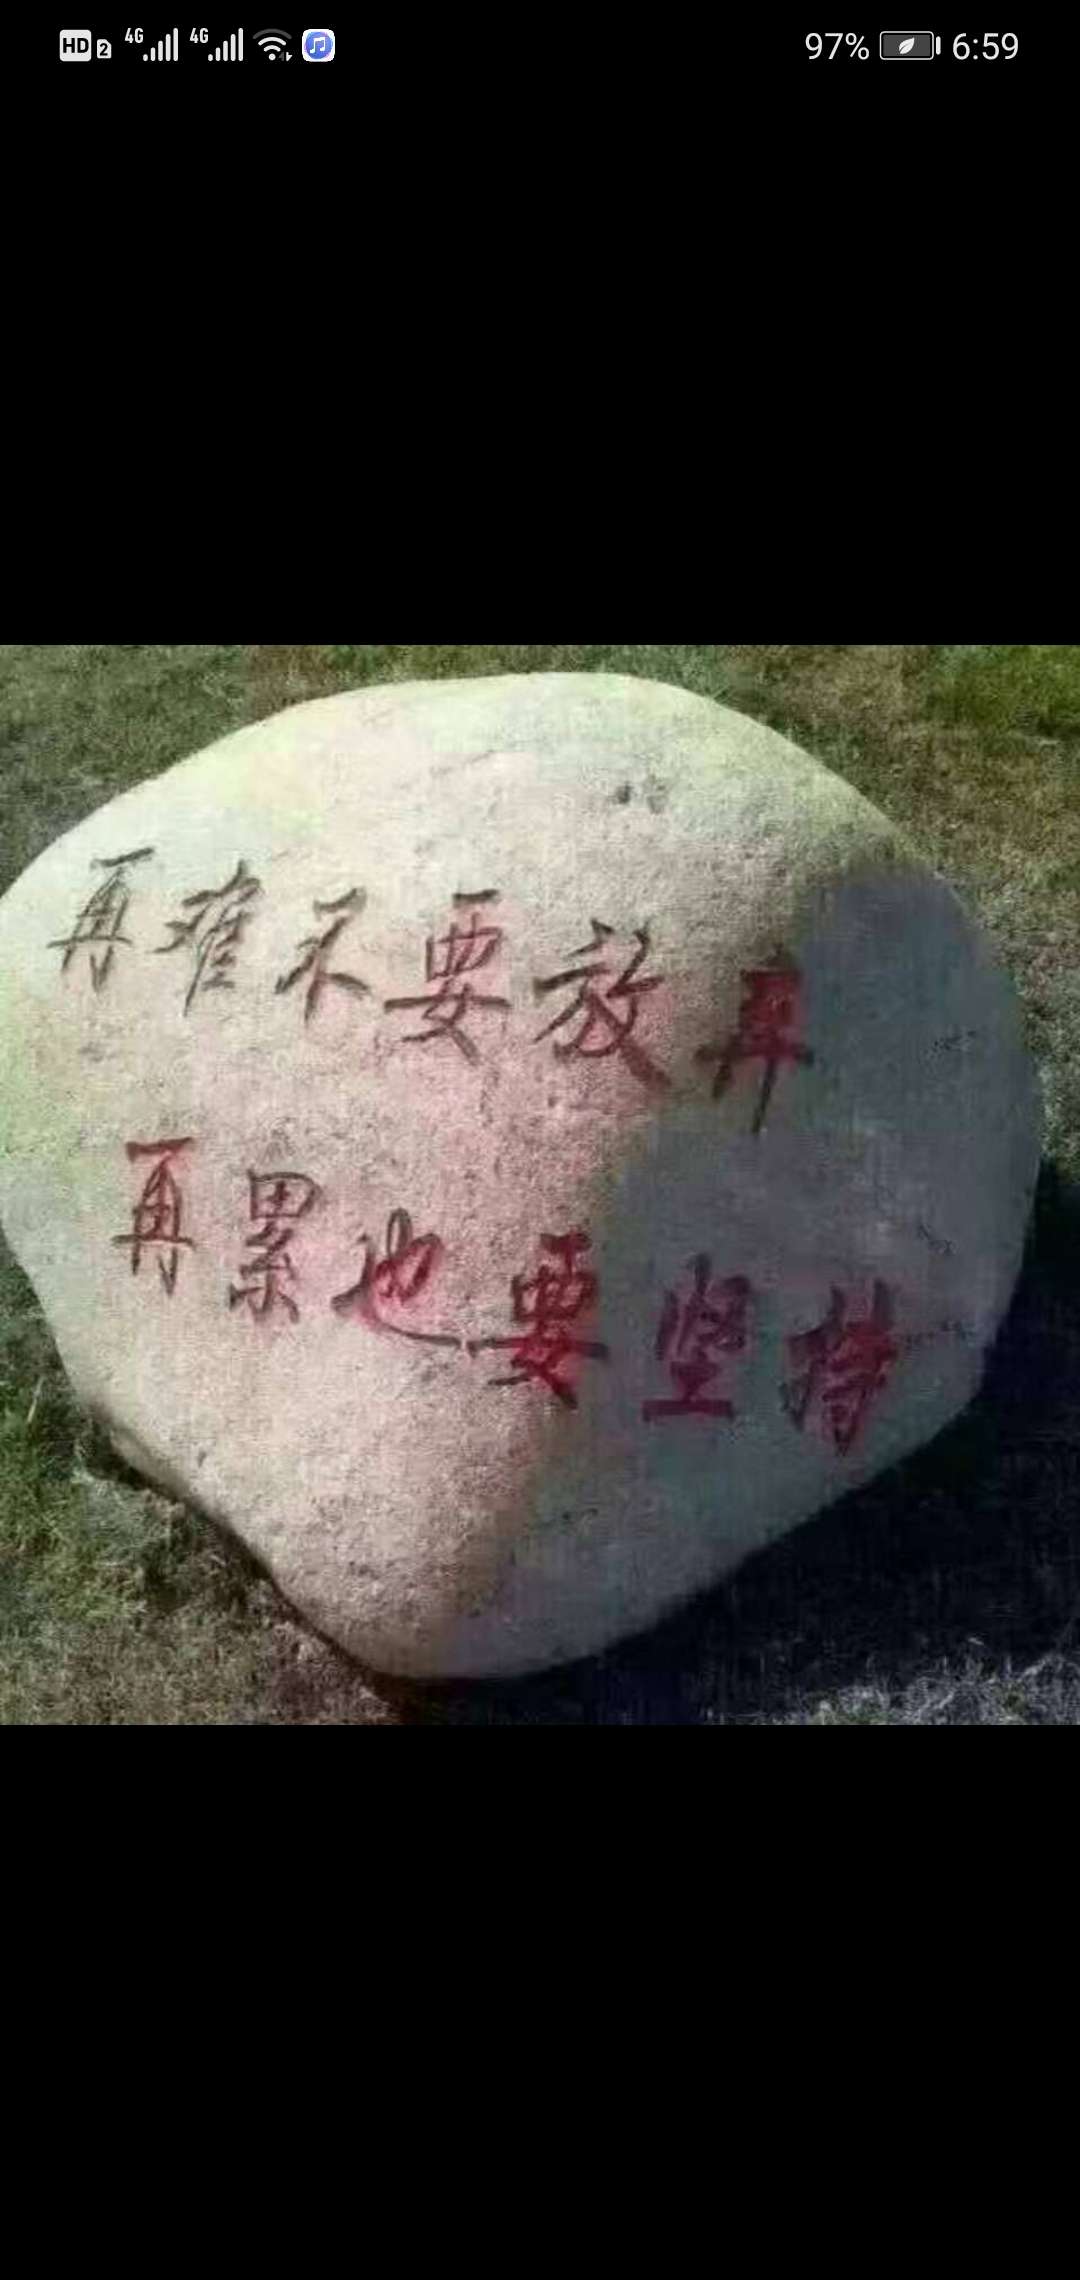 HD 2 4G 4G 97% 6:59
再难不要放弃
再累也要坚持